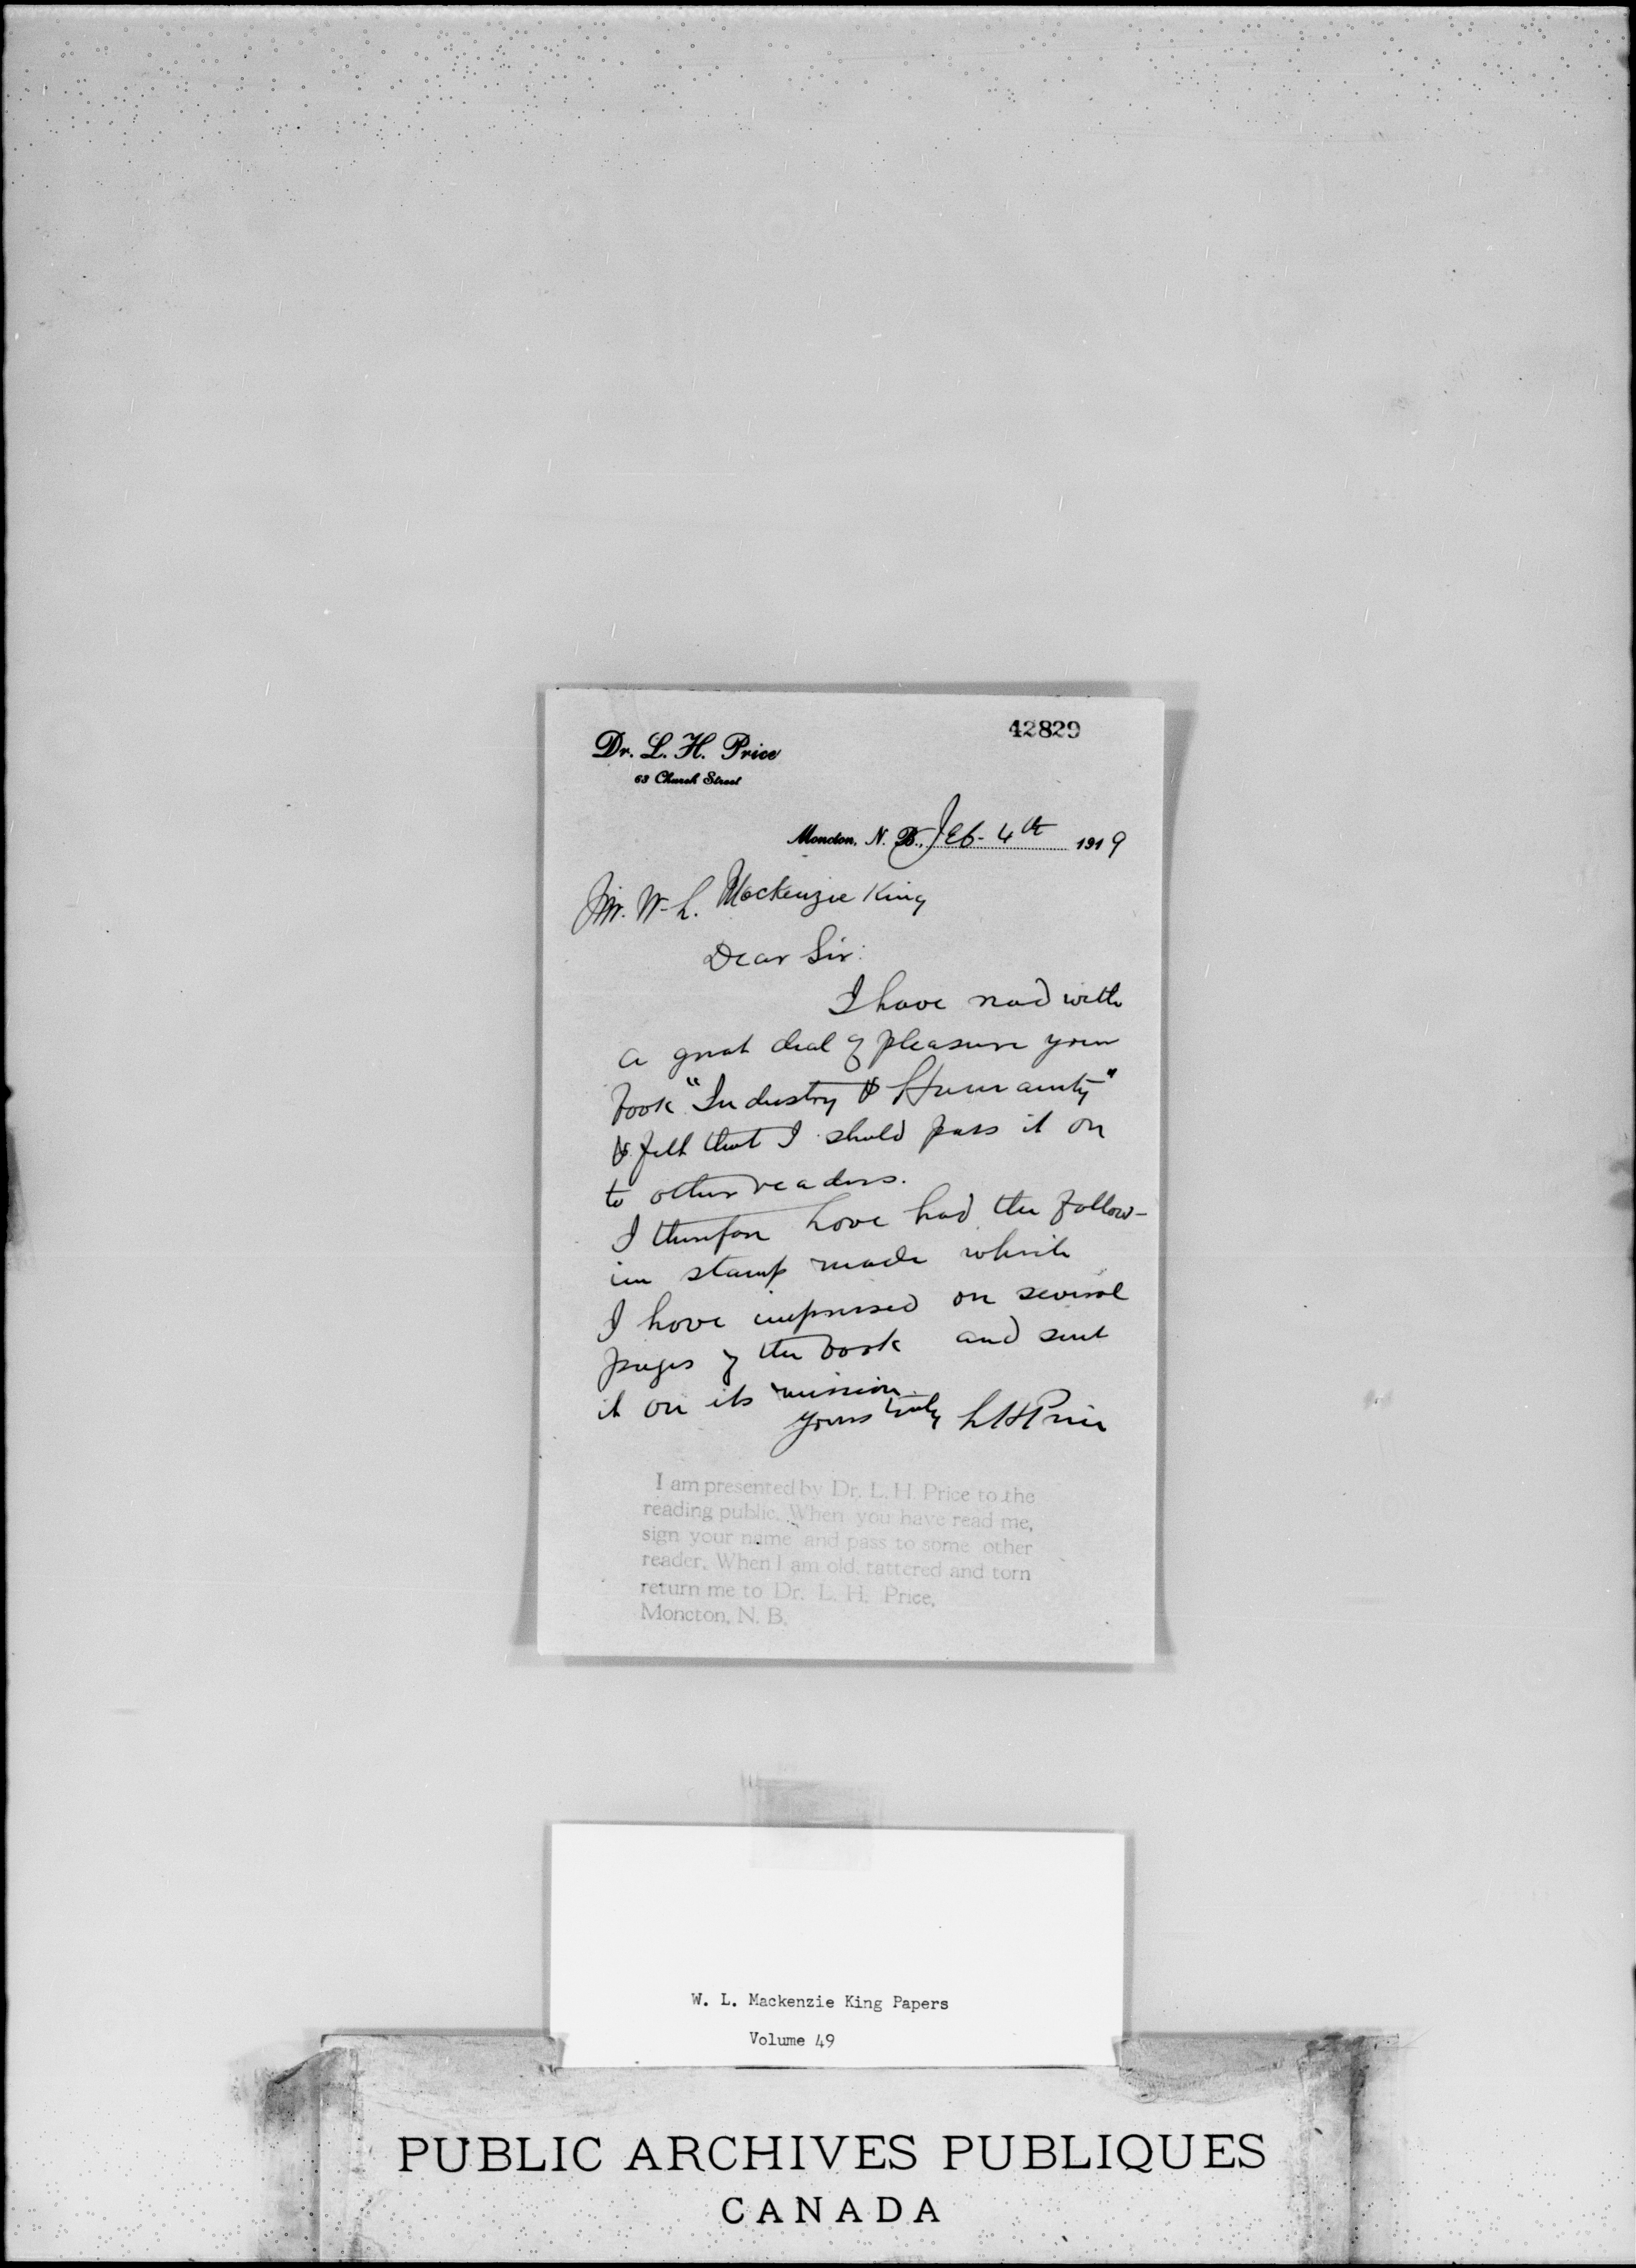 42829
Dr. L. H. Price
63 Church Street
Moncton, N. B., Feb. 4th 1919
Mr. W. L. Mackenzie King
Dear Sir:
I have read with
a great deal of pleasure your
book "Industry & Humanity"
& felt that I should pass it on
to other readers.
I therefore have had the follow-
in stamp made which
I have impressed on several
pages of the book and sent
it on its mission.
Yours truly L H Price
I am presented by Dr. L. H Price to the
reading public. When you have read me,
sign your name and pass to some other
reader. When I am old, tattered and torn
return me to Dr. L. H. Price,
Moncton, N. B.
W. L. Mackenzie King Papers
Volume 49
PUBLIC ARCHIVES PUBLIQUES
CANADA